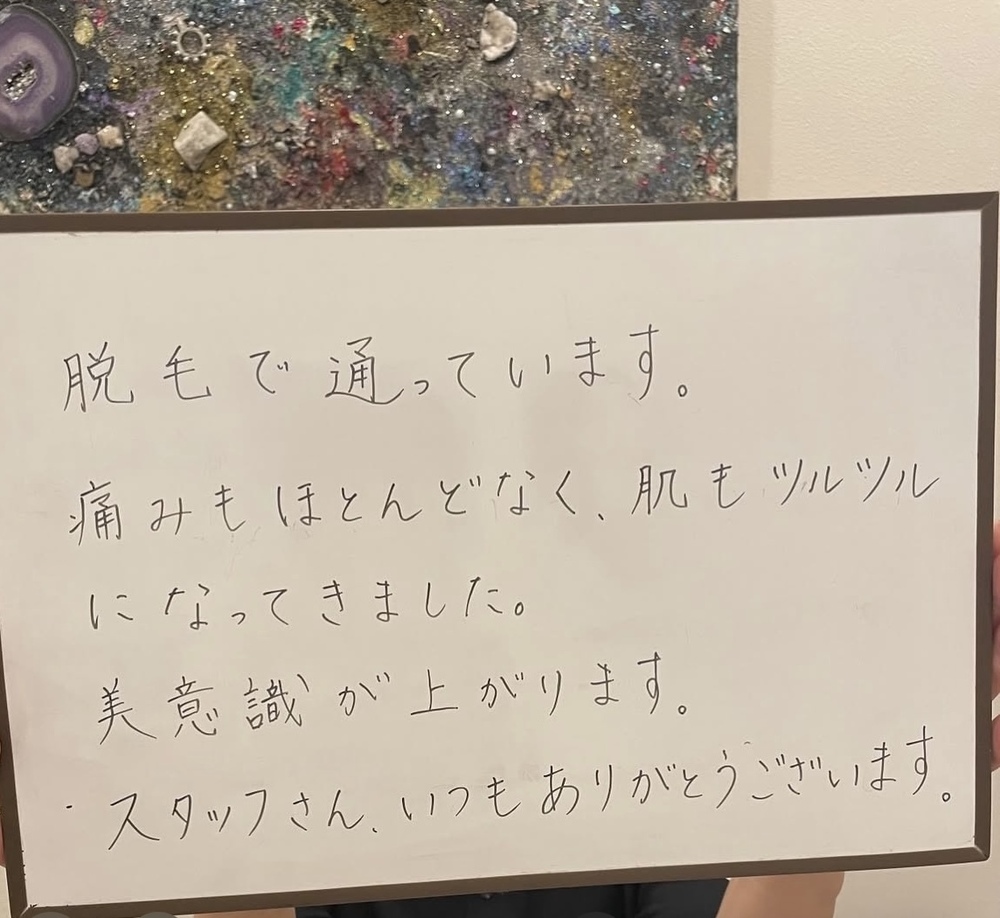 脱毛で通っています。
痛みもほとんどなく、肌もツルツル
になってきました。
美意識が上がります。
・スタッフさん、いつもありがとうございます。